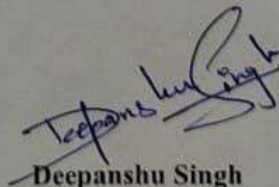 Deepanshu Singh
Deepanshu Singh